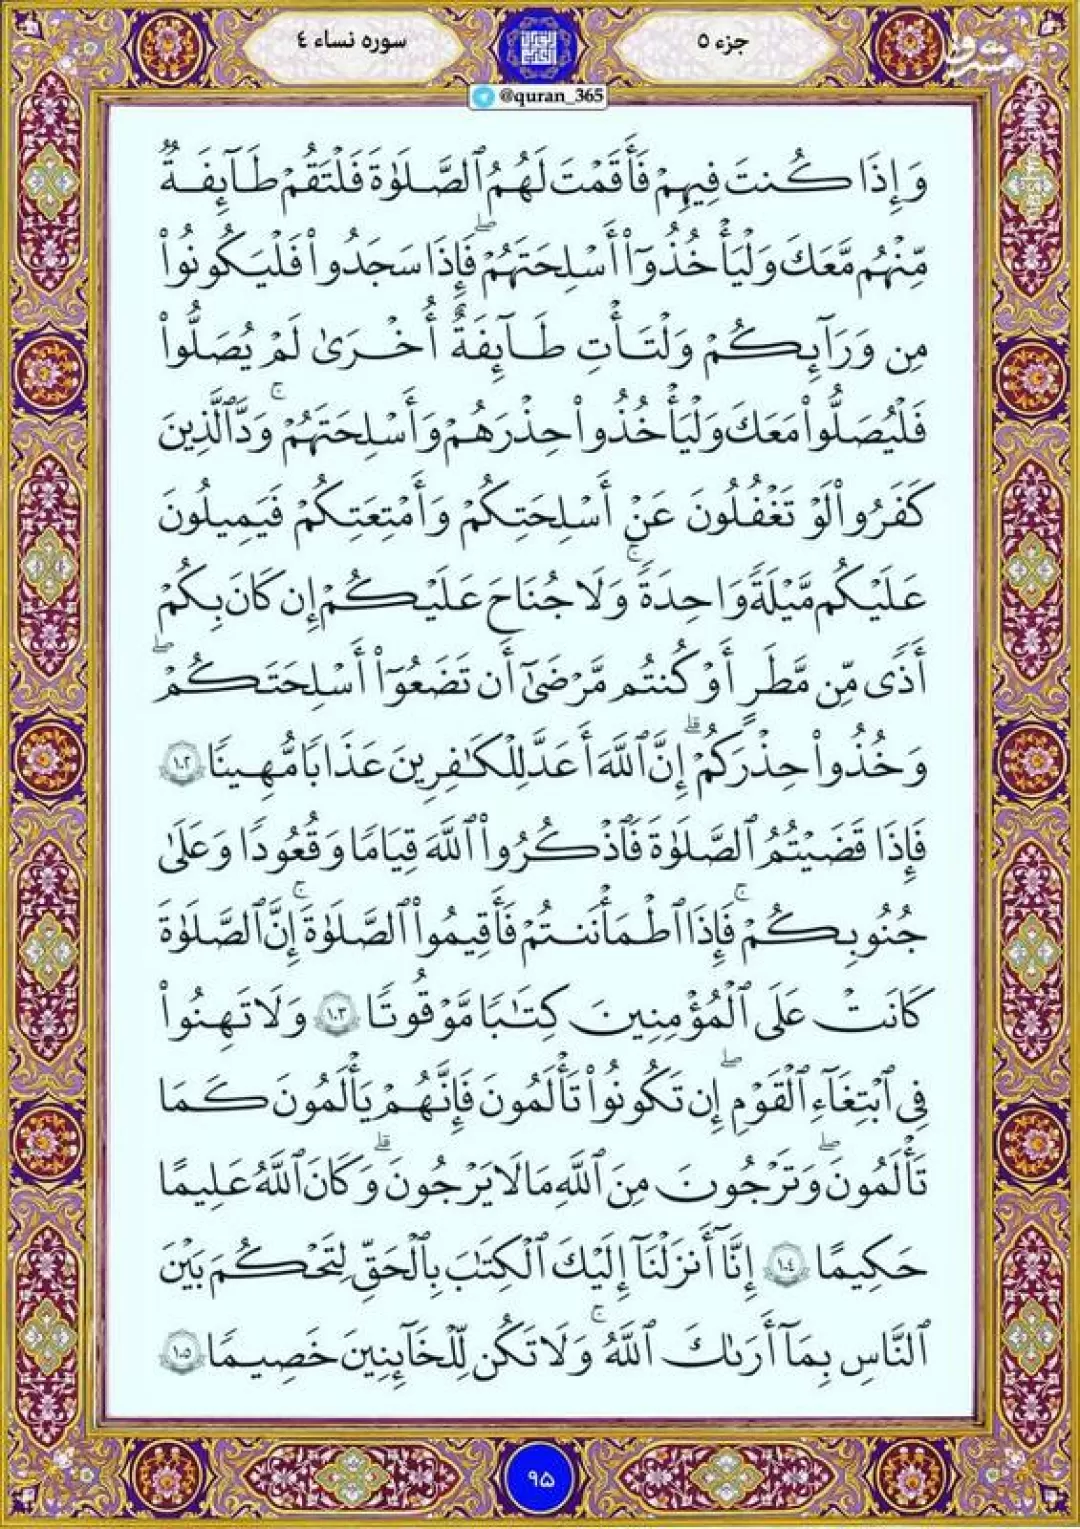 جزء ۵
سوره نساء ٤
@quran_365
وَإِذَا كُنتَ فِيهِمْ فَأَقَمْتَ لَهُمُ ٱلصَّلَوٰةَ فَلْتَقُمْ طَآئِفَةٌ
مِّنْهُم مَّعَكَ وَلْيَأْخُذُوٓا۟ أَسْلِحَتَهُمْ ۖ فَإِذَا سَجَدُوا۟ فَلْيَكُونُوا۟
مِن وَرَآئِكُمْ وَلْتَأْتِ طَآئِفَةٌ أُخْرَىٰ لَمْ يُصَلُّوا۟
فَلْيُصَلُّوا۟ مَعَكَ وَلْيَأْخُذُوا۟ حِذْرَهُمْ وَأَسْلِحَتَهُمْ ۚ وَدَّ ٱلَّذِينَ
كَفَرُوا۟ لَوْ تَغْفُلُونَ عَنْ أَسْلِحَتِكُمْ وَأَمْتِعَتِكُمْ فَيَمِيلُونَ
عَلَيْكُم مَّيْلَةً وَٰحِدَةً ۚ وَلَا جُنَاحَ عَلَيْكُمْ إِن كَانَ بِكُمْ
أَذًى مِّن مَّطَرٍ أَوْ كُنتُم مَّرْضَىٰٓ أَن تَضَعُوٓا۟ أَسْلِحَتَكُمْ ۖ
وَخُذُوا۟ حِذْرَكُمْ ۗ إِنَّ ٱللَّهَ أَعَدَّ لِلْكَٰفِرِينَ عَذَابًا مُّهِينًا ١٠٢
فَإِذَا قَضَيْتُمُ ٱلصَّلَوٰةَ فَٱذْكُرُوا۟ ٱللَّهَ قِيَامًا وَقُعُودًا وَعَلَىٰ
جُنُوبِكُمْ ۚ فَإِذَا ٱطْمَأْنَنتُمْ فَأَقِيمُوا۟ ٱلصَّلَوٰةَ ۚ إِنَّ ٱلصَّلَوٰةَ
كَانَتْ عَلَى ٱلْمُؤْمِنِينَ كِتَٰبًا مَّوْقُوتًا ١٠٣ وَلَا تَهِنُوا۟
فِى ٱبْتِغَآءِ ٱلْقَوْمِ ۖ إِن تَكُونُوا۟ تَأْلَمُونَ فَإِنَّهُمْ يَأْلَمُونَ كَمَا
تَأْلَمُونَ ۖ وَتَرْجُونَ مِنَ ٱللَّهِ مَا لَا يَرْجُونَ ۗ وَكَانَ ٱللَّهُ عَلِيمًا
حَكِيمًا ١٠٤ إِنَّآ أَنزَلْنَآ إِلَيْكَ ٱلْكِتَٰبَ بِٱلْحَقِّ لِتَحْكُمَ بَيْنَ
ٱلنَّاسِ بِمَآ أَرَىٰكَ ٱللَّهُ ۚ وَلَا تَكُن لِّلْخَآئِنِينَ خَصِيمًا ١٠٥
۹۵